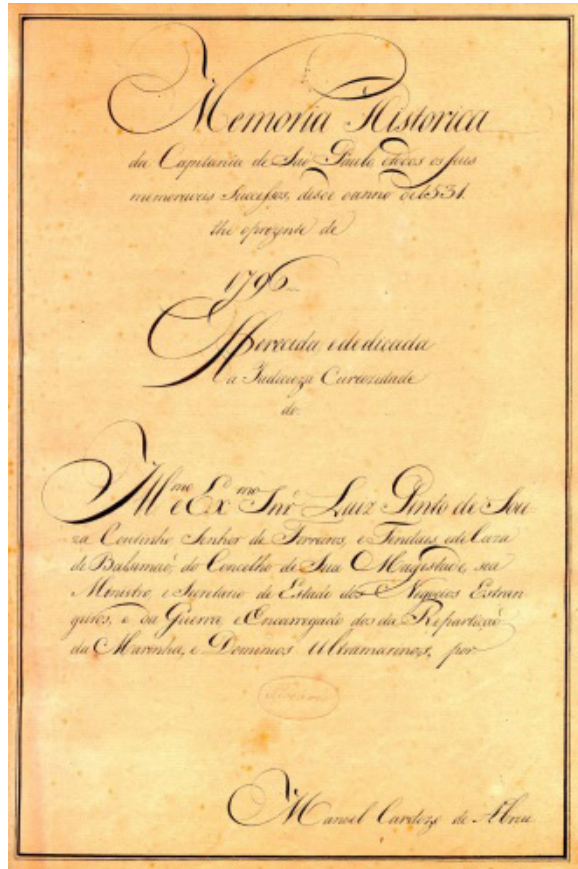 Memoria Historica
da Capitania de São Paulo, etodos os seus
memoraveis Successos, desde oanno de1531.
the oprezente de
1796
Offerecida, e dedicada
a Judicioza Curiozidade
do
Ill.mo e Ex.mo Snr Luiz Pinto de Sou-
za Coutinho Senhor de Ferreiros, e Tendaes, e de Caza
de Balsimaõ, do Concelho de Sua Magestade, seu
Ministro, e Secretario de Estado dos Negocios Estran
geiros, e da Guerra e Encarregado dos da Repartiçaõ
da Marinha, e Dominios Ultramarinos, por
Manoel Cardozo de Abreu